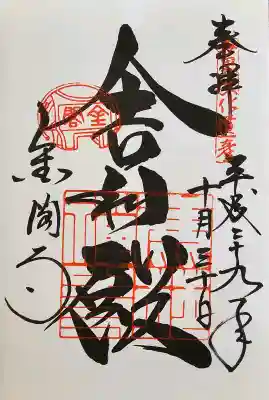 奉拝
平成二十九年
十月三十日
舎利殿
金閣
金閣寺